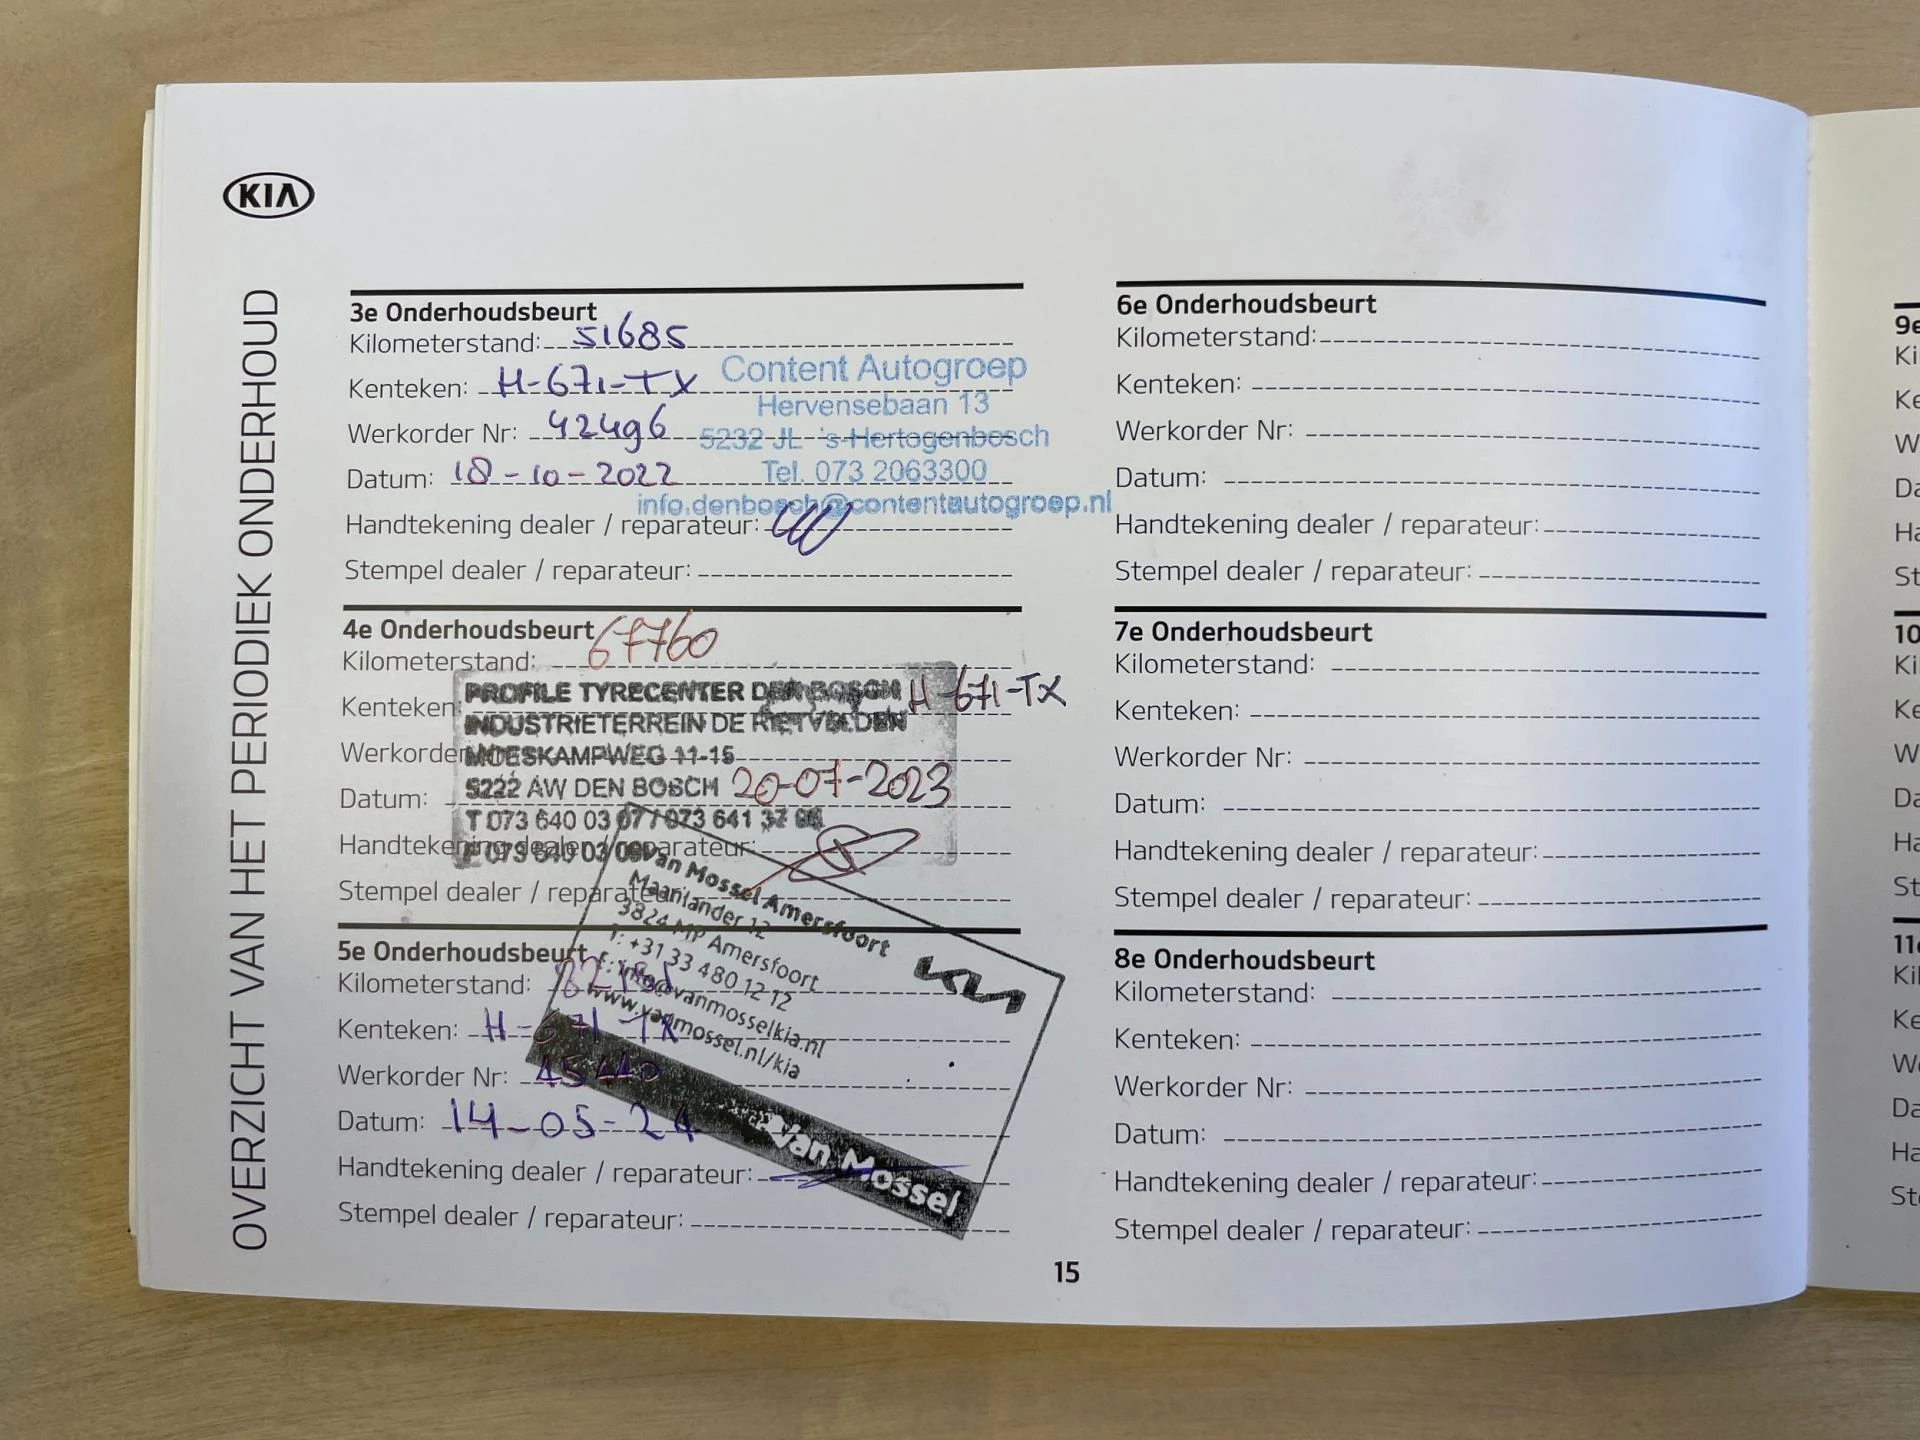 KIA
OVERZICHT VAN HET PERIODIEK ONDERHOUD
3e Onderhoudsbeurt
Kilometerstand: 51685
Kenteken: H-671-TX
Werkorder Nr: 42496
Datum: 18-10-2022
Handtekening dealer / reparateur:
Stempel dealer / reparateur:
Content Autogroep
Hervensebaan 13
5232 JL 's-Hertogenbosch
Tel. 073 2063300
info.denbosch@contentautogroep.nl
4e Onderhoudsbeurt
Kilometerstand: 67760
Kenteken H-671-TX
Werkorder
Datum: 20-07-2023
Handtekening dealer / reparateur:
Stempel dealer / reparateur:
PROFILE TYRECENTER DEN BOSCH
INDUSTRIETERREIN DE RIETVELDEN
MOESKAMPWEG 11-15
5222 AW DEN BOSCH
T 073 640 03 07 / 073 641
F 073 640 03
5e Onderhoudsbeurt
Kilometerstand:
Kenteken: H-671-TX
Werkorder Nr: 45440
Datum: 14-05-24
Handtekening dealer / reparateur:
Stempel dealer / reparateur:
Van Mossel Amersfoort
Maanlander 12
3824 MP Amersfoort
T: +31 33 480 12 12
E: info@vanmosselkia.nl
www.vanmossel.nl/kia
KIA
Van Mossel
6e Onderhoudsbeurt
Kilometerstand:
Kenteken:
Werkorder Nr:
Datum:
Handtekening dealer / reparateur:
Stempel dealer / reparateur:
7e Onderhoudsbeurt
Kilometerstand:
Kenteken:
Werkorder Nr:
Datum:
Handtekening dealer / reparateur:
Stempel dealer / reparateur:
8e Onderhoudsbeurt
Kilometerstand:
Kenteken:
Werkorder Nr:
Datum:
Handtekening dealer / reparateur:
Stempel dealer / reparateur:
15
9e
Ki
Ke
W
Da
Ha
St
10
Ki
Ke
W
Da
Ha
St
11e
Kil
Ke
We
Da
Ha
Ste